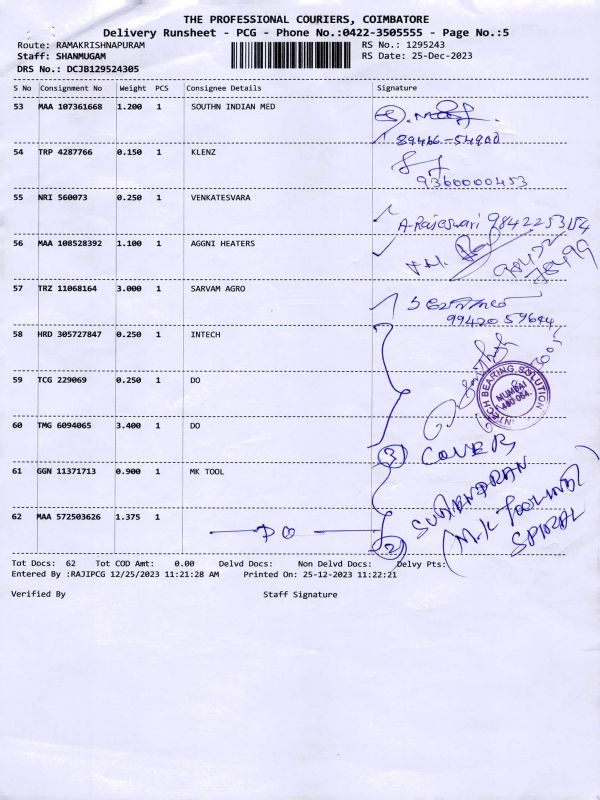 THE PROFESSIONAL COURIERS, COIMBATORE
Delivery Runsheet - PCG - Phone No.:0422-3505555 - Page No.:5
Route: RAMAKRISHNAPURAM RS No.: 1295243
Staff: SHANMUGAM RS Date: 25-Dec-2023
DRS No.: DCJB129524305
S No Consignment No Weight PCS Consignee Details Signature
53 MAA 107361668 1.200 1 SOUTHN INDIAN MED
89466-54800
54 TRP 4287766 0.150 1 KLENZ
9360000453
55 NRI 560073 0.250 1 VENKATESVARA
A-Rajeswari 9842253154
56 MAA 108528392 1.100 1 AGGNI HEATERS
98422
78499
57 TRZ 11068164 3.000 1 SARVAM AGRO
99420 59644
58 HRD 305727847 0.250 1 INTECH
59 TCG 229069 0.250 1 DO
INTECH BEARING SOLUTION
MUMBAI
400 064.
60 TMG 6094065 3.400 1 DO
3 COVER
61 GGN 11371713 0.900 1 MK TOOL
62 MAA 572503626 1.375 1
DO
2
(M.K TOOLING)
SPIRAL
Tot Docs: 62 Tot COD Amt: 0.00 Delvd Docs: Non Delvd Docs: Delvy Pts:
Entered By :RAJIPCG 12/25/2023 11:21:28 AM Printed On: 25-12-2023 11:22:21
Verified By Staff Signature